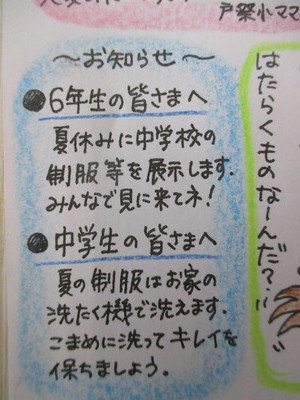 戸祭小ママ
～お知らせ～
●6年生の皆さまへ
夏休みに中学校の
制服等を展示します.
みんなで見に来てネ!
●中学生の皆さまへ
夏の制服はお家の
洗たく機で洗えます.
こまめに洗ってキレイを
保ちましょう.
はたらくものなーんだ?